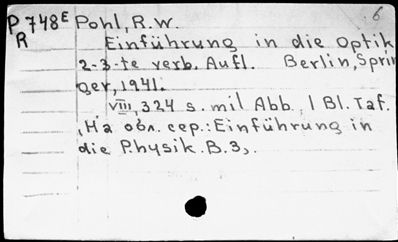 P 748E Pohl, R.W. 6
R Einführung in die Optik
2-3-te verb. Aufl. Berlin, Sprin
ger, 1941.
VIII, 324 s. mil Abb, 1 Bl. Taf.
, На обл. сер.: Einführung in
die Physik. B.3,.